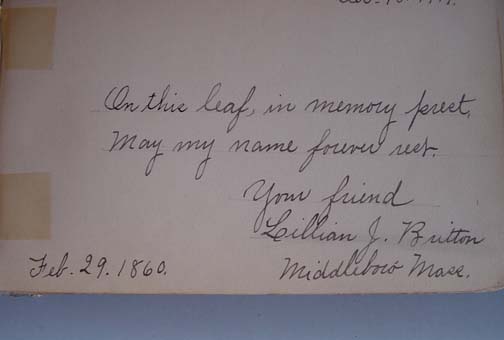 On this leaf, in memory prest,
May my name forever rest.
Your friend
Lillian J. Britton
Feb. 29. 1860.
Middleboro Mass.